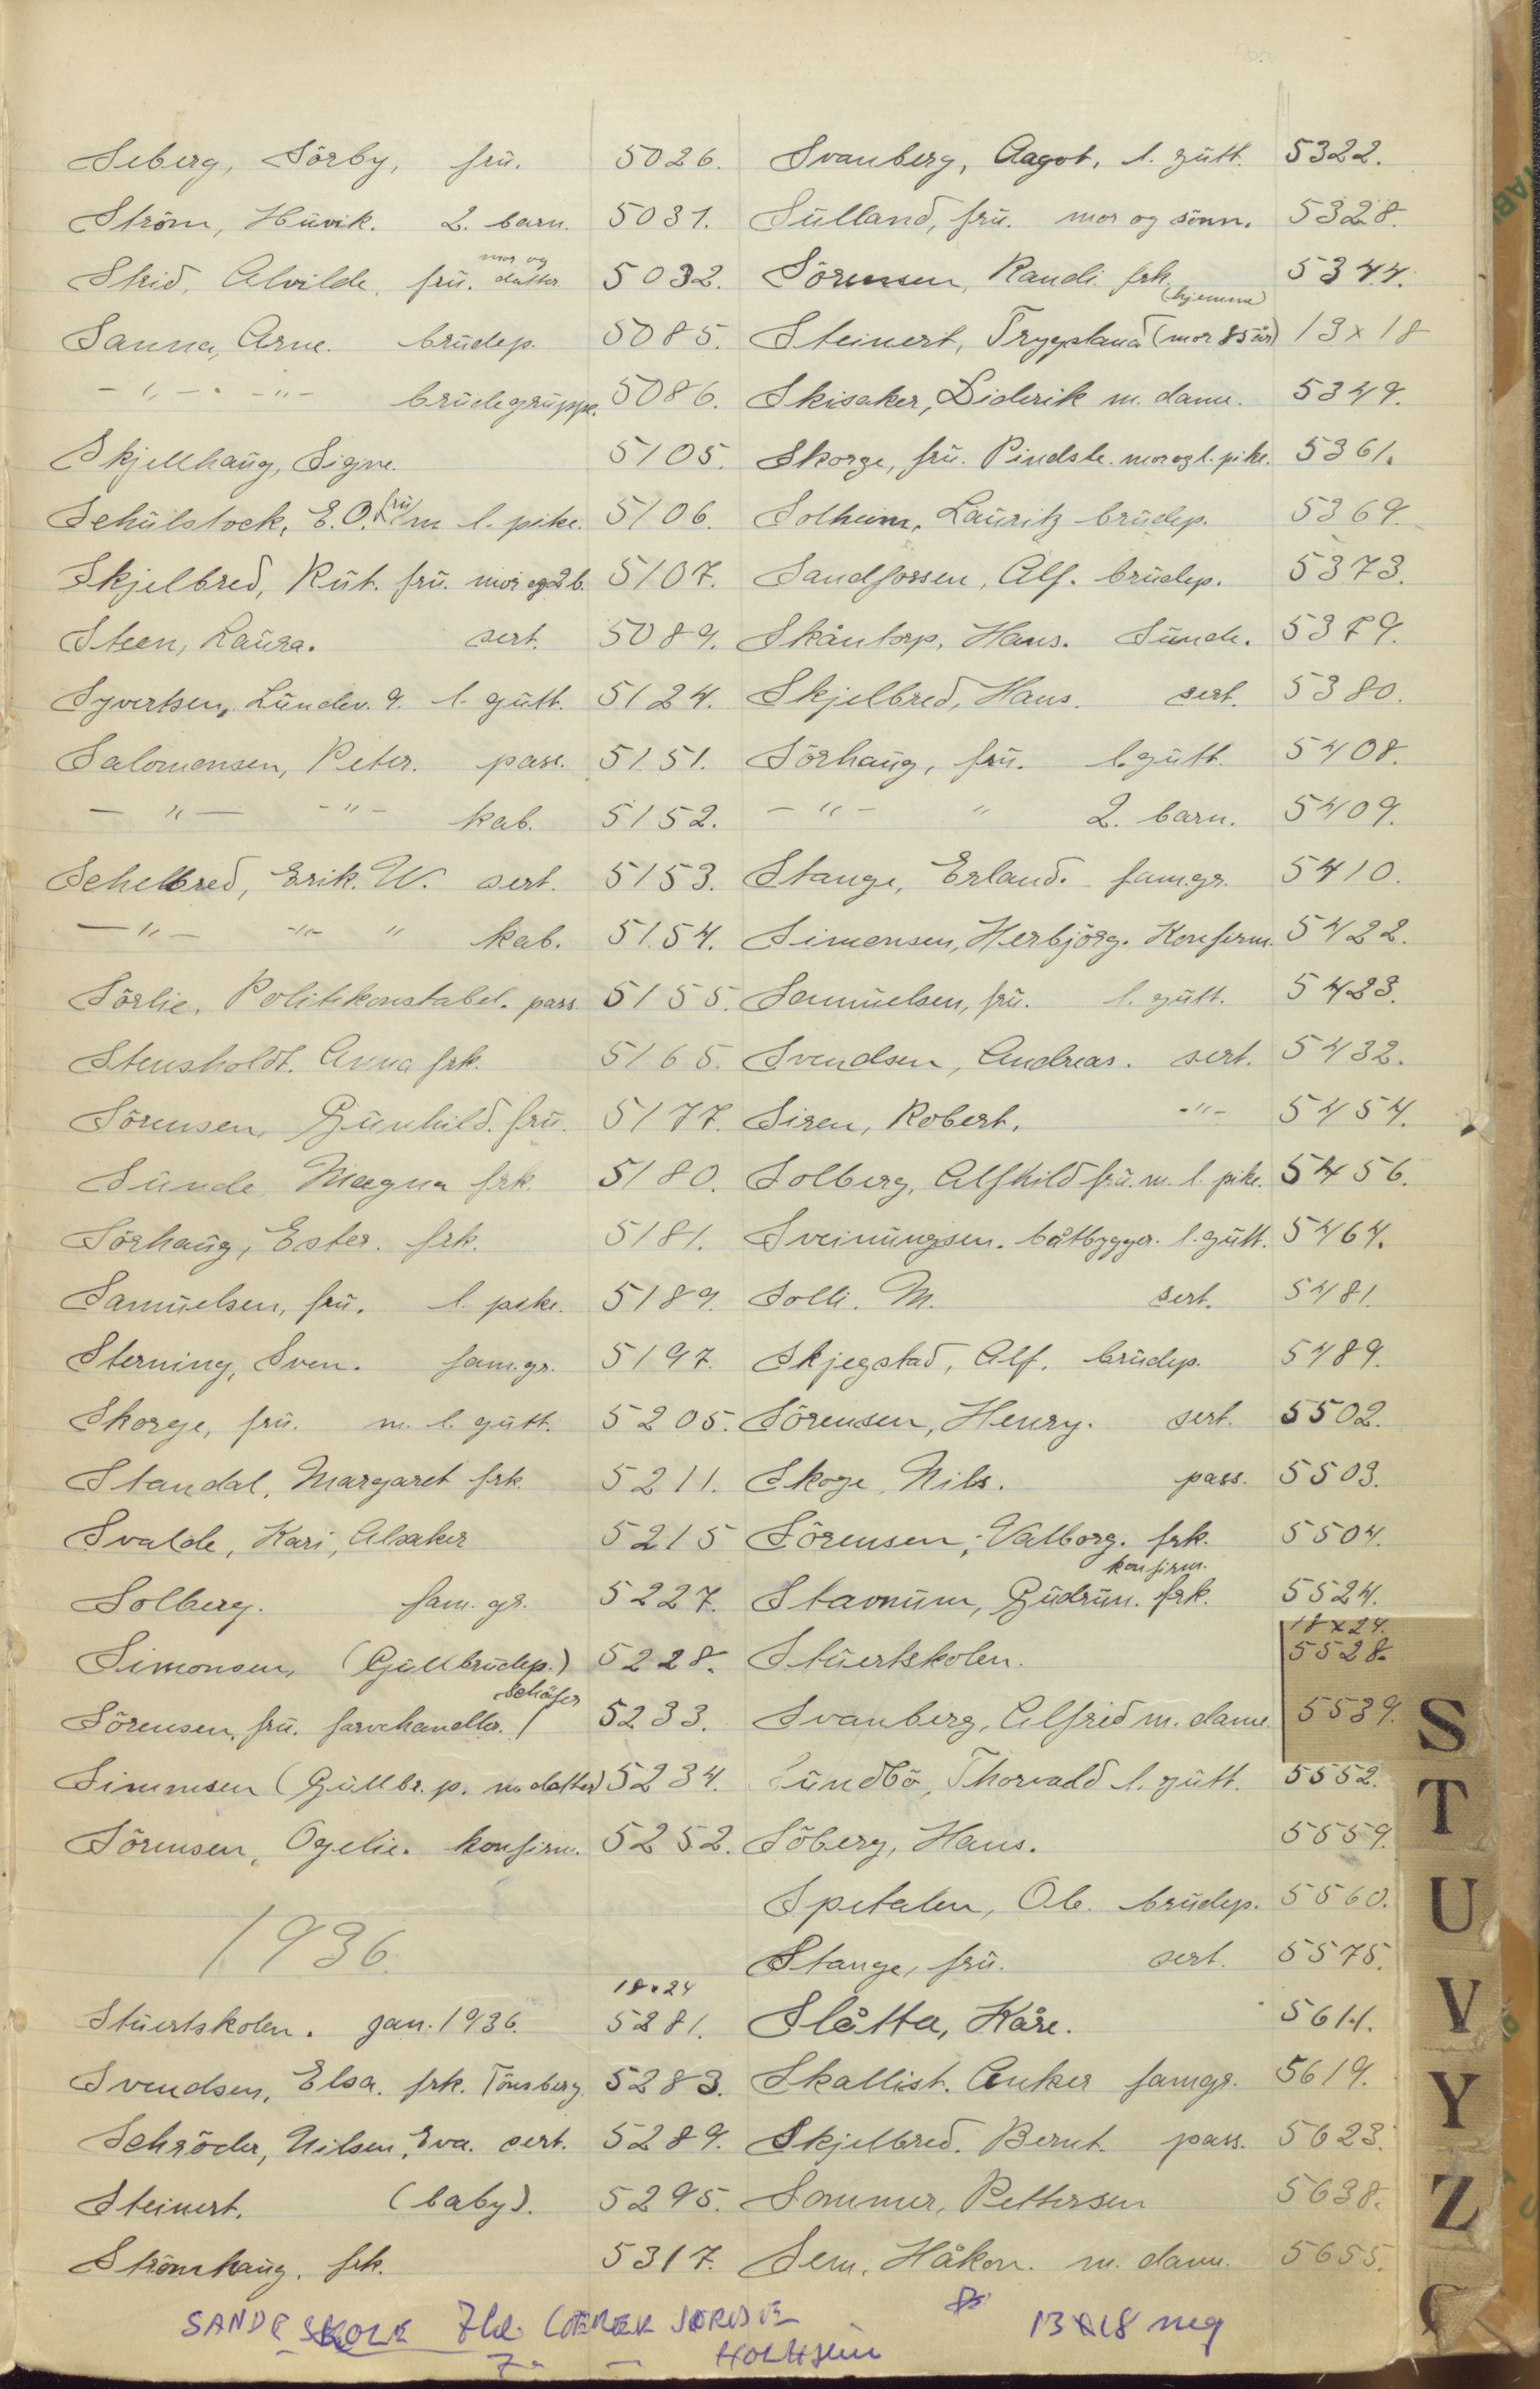 Seberg, Sörby, frü. 5026.
Ström, Hüvik. 2. barn. 5031.
Skid, Alvilde, frü. mor og datter 5032.
Sanna, Arne. brüdep. 5085.
-"- -"- brüdegrüppe. 5086.
Skjellhaüg, Signe. 5105.
Schülstock, E.O. frü m l. pike. 5106.
Skjelbred, Rüt. frü. mor og 2 b. 5107.
Steen, Laüra. sert. 5089.
Syvertsen, Lündev. 9. l. gütt. 5124.
Salomonsen, Peter. pass. 5151.
-"- -"- kab. 5152.
Schelbred, Erik. W. sert. 5153.
-"- -"- " kab. 5154.
Sörlie, Politikonstabel. pass. 5155.
Stensholdt. Anna frk. 5165.
Sörensen, Günhild. frü. 5177.
Sünde, Magna frk. 5180.
Sörhaüg, Ester. frk. 5181.
Samüelsen, frü. l. pike. 5189.
Sterning, Sven. fam.gr. 5197.
Skorge, frü. m. l. gütt. 5205.
Standal, Margaret frk. 5211.
Svalde, Kari, Alsaker 5215
Solberg. fam. gr. 5227.
Simonsen, (Güllbrüdep.) 5228.
Sörensen, frü. farvehandler. / Schäfer 5233.
Simmsen (Güllbr. p. m datter) 5234.
Sörensen, Ogelie. konfirm. 5252.
1936.
18x24
Stüertskolen. jan. 1936. 5281.
Svendsen, Elsa. frk. Tönsberg. 5283.
Schröder, Nilsen, Eva. sert. 5289.
Steinert. (baby). 5295.
Strömhaüg. frk. 5317.
Svanberg, Aagot, l. gütt. 5322.
Sülland, frü. mor og sönn. 5328.
Sörensen, Randi frk. 5344.
Steinert, Trygstand (mor 85 år) (hjemme) 13x18
Skisaker, Diderik m. dame. 5349.
Skorge, frü. Pindsle. mor og l. pike. 5361.
Solheim, Laüritz brüdep. 5369.
Sandfossen, Alf. brüdep. 5373.
Skåntorp, Hans. Sünde. 5379.
Skjelbred, Hans. sert. 5380.
Sörhaüg, frü. l. gütt. 5408.
-"- " 2. barn. 5409.
Stange, Erland. fam.gr. 5410.
Simonsen, Herbjörg. Konfirm. 5422.
Samüelsen, frü. l. gütt. 5423.
Svendsen, Andreas. sert. 5432.
Siren, Robert. -"- 5454.
Solberg, Alfhild frü. m. l. pike. 5456.
Sveinüngsen. båtbygger. l. gütt. 5464.
Solli. M. sert. 5481.
Skjegstad, Alf. brüdep. 5489.
Sörensen, Henry. sert. 5502.
Skoge, Nils. pass. 5503.
Sörensen, Valborg. frk. 5504.
Stavnüm, Güdrün. frk. konfirm. 5524.
18x24.
Stüertskolen. 5528.
Svanberg, Alfred m. dame. 5539.
Sündbö, Thorvald l. gütt. 5552.
Söberg, Hans. 5559.
Spetalen, Ole. brüdep. 5560.
Stange, frü. sert. 5575.
Slåtta, Kåre. 5611.
Skallist. Anker famgr. 5619.
Skjelbred. Bernt. pass. 5623.
Sommer, Pettersen 5638.
Sem, Håkon. m. dame. 5655.
SANDE SKOLE 7kl.
13x18 neg
S
T
U
V
Y
Z